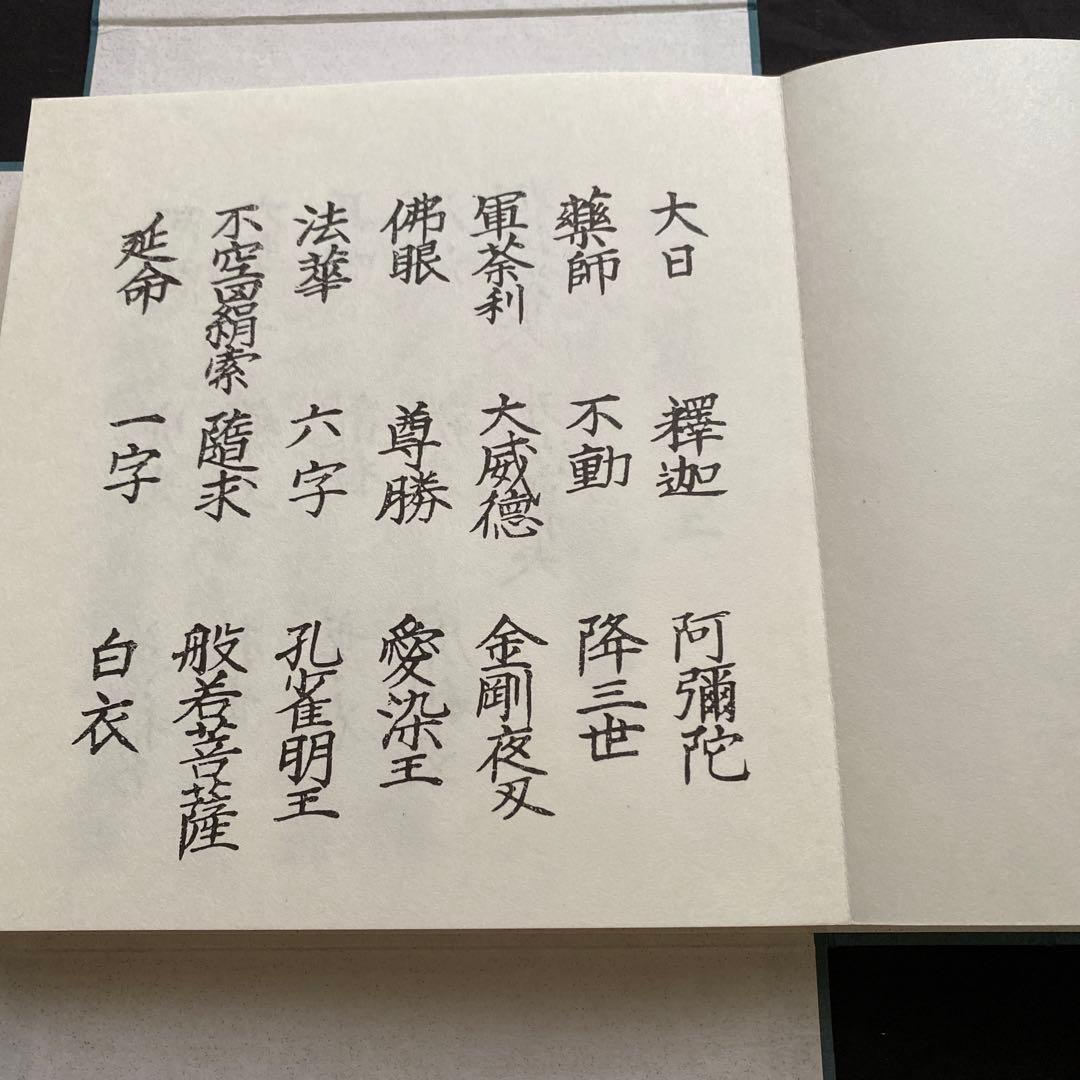 大日 釋迦 阿彌陀
藥師 不動 降三世
軍荼利 大威德 金剛夜叉
佛眼 尊勝 愛染王
法華 六字 孔雀明王
不空羂索 隨求 般若菩薩
延命 一字 白衣